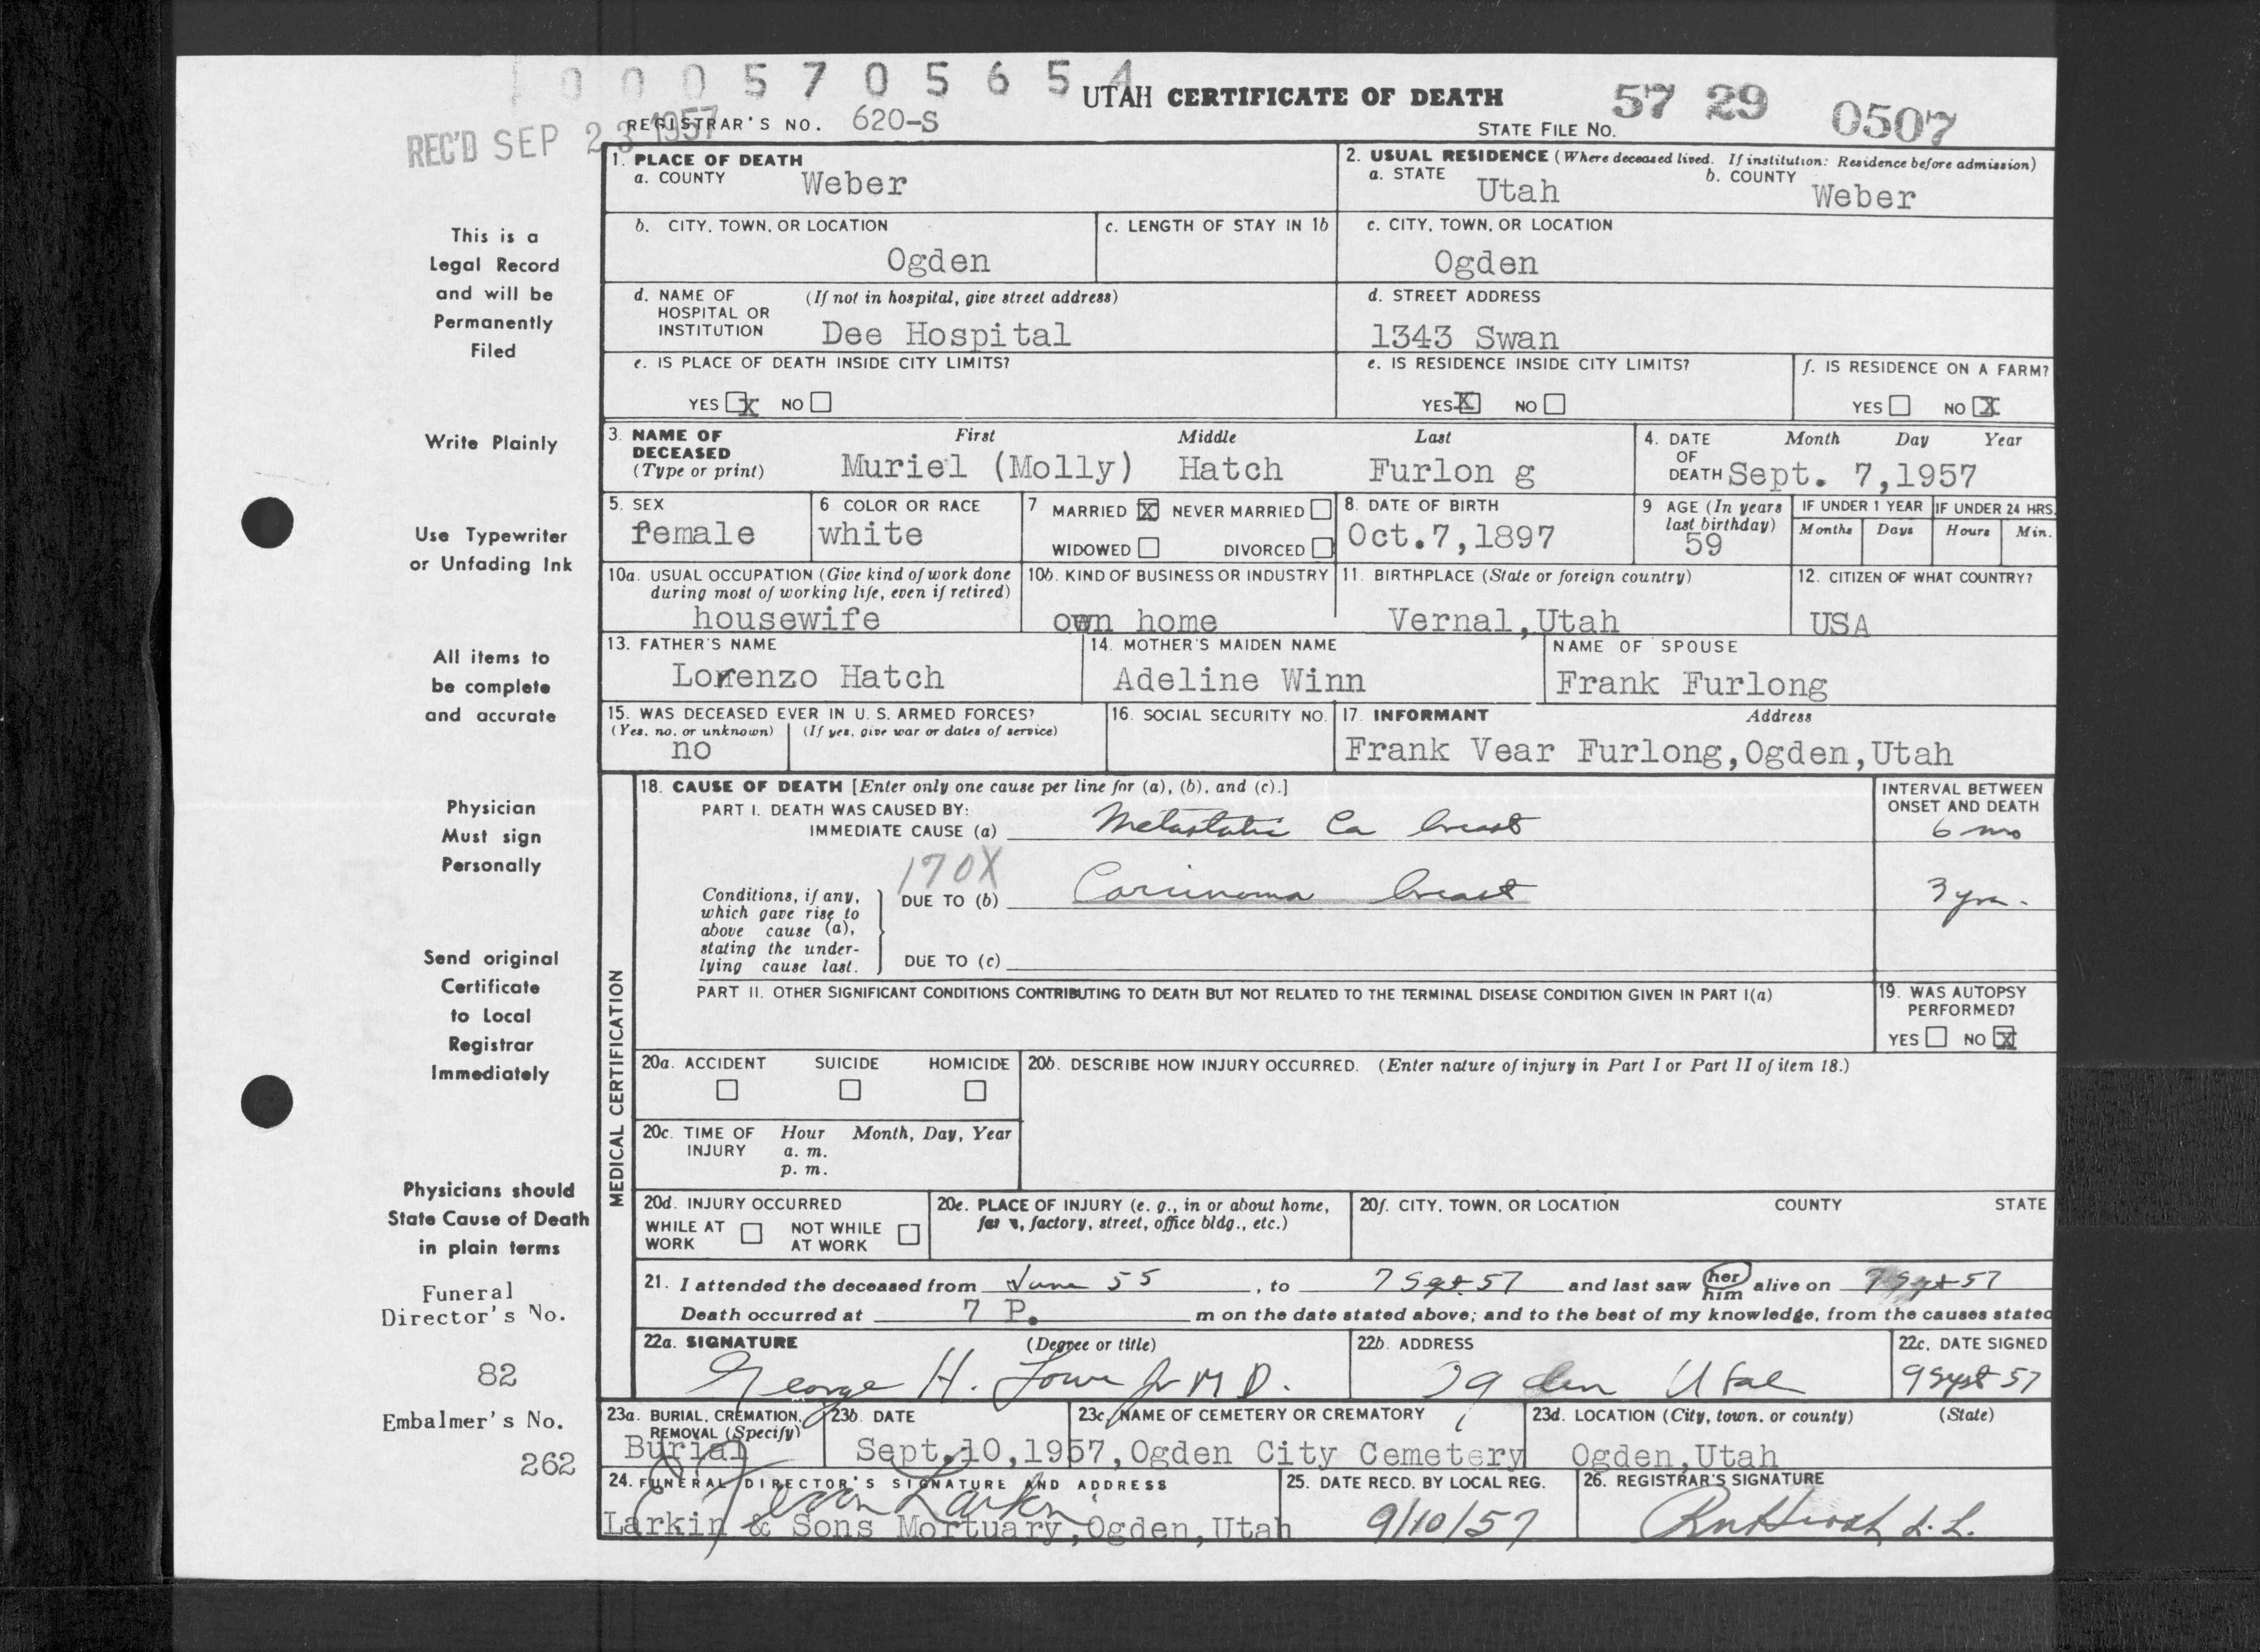 1 0 0 0 5 7 0 5 6 5 4
UTAH CERTIFICATE OF DEATH
57 29 0507
REC'D SEP 23 1957
REGISTRAR'S NO. 620-S
STATE FILE NO.
1. PLACE OF DEATH
a. COUNTY Weber
2. USUAL RESIDENCE (Where deceased lived. If institution: Residence before admission)
a. STATE Utah b. COUNTY Weber
b. CITY, TOWN, OR LOCATION Ogden
c. LENGTH OF STAY IN 1b
c. CITY, TOWN, OR LOCATION Ogden
d. NAME OF HOSPITAL OR INSTITUTION (If not in hospital, give street address)
Dee Hospital
d. STREET ADDRESS
1343 Swan
e. IS PLACE OF DEATH INSIDE CITY LIMITS?
YES X NO
e. IS RESIDENCE INSIDE CITY LIMITS?
YES X NO
f. IS RESIDENCE ON A FARM?
YES NO X
3. NAME OF DECEASED (Type or print)
First Middle Last
Muriel (Molly) Hatch Furlon g
4. DATE OF DEATH Month Day Year
Sept. 7,1957
5. SEX
female
6 COLOR OR RACE
white
7 MARRIED X NEVER MARRIED
WIDOWED DIVORCED
8. DATE OF BIRTH
Oct.7,1897
9 AGE (In years last birthday)
59
IF UNDER 1 YEAR
Months Days
IF UNDER 24 HRS.
Hours Min.
10a. USUAL OCCUPATION (Give kind of work done during most of working life, even if retired)
housewife
10b. KIND OF BUSINESS OR INDUSTRY
own home
11. BIRTHPLACE (State or foreign country)
Vernal,Utah
12. CITIZEN OF WHAT COUNTRY?
USA
13. FATHER'S NAME
Lorenzo Hatch
14. MOTHER'S MAIDEN NAME
Adeline Winn
NAME OF SPOUSE
Frank Furlong
15. WAS DECEASED EVER IN U. S. ARMED FORCES?
(Yes, no, or unknown) (If yes, give war or dates of service)
no
16. SOCIAL SECURITY NO.
17. INFORMANT Address
Frank Vear Furlong,Ogden,Utah
MEDICAL CERTIFICATION
18. CAUSE OF DEATH [Enter only one cause per line for (a), (b), and (c).]
INTERVAL BETWEEN ONSET AND DEATH
PART I. DEATH WAS CAUSED BY:
IMMEDIATE CAUSE (a) Metastatic Ca breast 6 mo
170X
Conditions, if any, which gave rise to above cause (a), stating the underlying cause last.
DUE TO (b) Carcinoma breast 3 yrs.
DUE TO (c)
PART II. OTHER SIGNIFICANT CONDITIONS CONTRIBUTING TO DEATH BUT NOT RELATED TO THE TERMINAL DISEASE CONDITION GIVEN IN PART I(a)
19. WAS AUTOPSY PERFORMED?
YES NO X
20a. ACCIDENT SUICIDE HOMICIDE
20b. DESCRIBE HOW INJURY OCCURRED. (Enter nature of injury in Part I or Part II of item 18.)
20c. TIME OF INJURY Hour Month, Day, Year
a. m.
p. m.
20d. INJURY OCCURRED
WHILE AT WORK NOT WHILE AT WORK
20e. PLACE OF INJURY (e. g., in or about home, farm, factory, street, office bldg., etc.)
20f. CITY, TOWN, OR LOCATION COUNTY STATE
21. I attended the deceased from June 55, to 7 Sept. 57 and last saw her him alive on 7 Sept 57
Death occurred at 7 P. m on the date stated above; and to the best of my knowledge, from the causes stated
22a. SIGNATURE (Degree or title)
George H. Lowe Jr M D.
22b. ADDRESS
Ogden Utah
22c. DATE SIGNED
9 Sept 57
23a. BURIAL, CREMATION, REMOVAL (Specify)
Burial
23b. DATE
Sept.10,1957,
23c. NAME OF CEMETERY OR CREMATORY
Ogden City Cemetery
23d. LOCATION (City, town, or county) (State)
Ogden,Utah
24. FUNERAL DIRECTOR'S SIGNATURE AND ADDRESS
Larkin
Larkin & Sons Mortuary,Ogden,Utah
25. DATE RECD. BY LOCAL REG.
9/10/57
26. REGISTRAR'S SIGNATURE
This is a
Legal Record
and will be
Permanently
Filed
Write Plainly
Use Typewriter
or Unfading Ink
All items to
be complete
and accurate
Physician
Must sign
Personally
Send original
Certificate
to Local
Registrar
Immediately
Physicians should
State Cause of Death
in plain terms
Funeral
Director's No.
82
Embalmer's No.
262